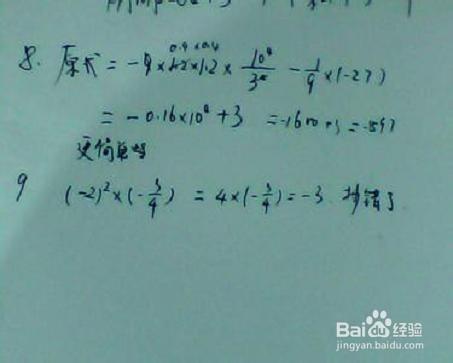 8. 原式 = -9 × 1.2 × 1.2 × 10⁴/3² - 1/9 × (-27)
0.4 × 0.4
= -0.16×10⁴ + 3 = -1600+3 = -1597
更简单吗
9 (-2)² × (-3/4) = 4×(-3/4) = -3 抄错了
Bai du 经验
jingyan.baidu.com